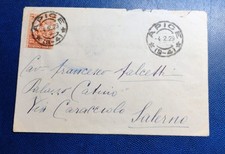 APICE
(9-41)
APICE
-4.2.35
(9-41)
Cav. Francesco Falcetti
Palazzo Catino
Via Caracciolo
Salerno